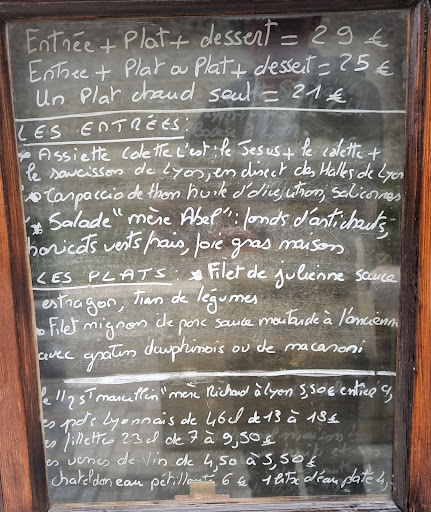 Entrée + Plat + dessert = 29 €
Entree + Plat ou Plat + dessert = 25 €
Un Plat chaud seul = 21 €
LES ENTRÉES :
Assiette Colette c'est : le Jesus + le colette +
le saucisson de Lyon, en direct des Halles de Lyon
Carpaccio de thon huile d'olive, citron, salicornes
Salade "mère Abel" : fonds d'artichauts,
haricots verts frais, foie gras maison
LES PLATS : Filet de julienne sauce
estragon, tian de légumes
Filet mignon de porc sauce moutarde à l'ancienne
avec gratin dauphinois ou de macaroni
le 1/2 St marcellin "mère Richard à Lyon 5,50€ entier 9,
es pots Lyonnais de 46cl de 13 à 18€
es fillettes 23cl de 7 à 9,50€
es verres de vin de 4,50 à 5,50€
chateldon eau pétillante 6€ 1 litre d'eau plate 4,